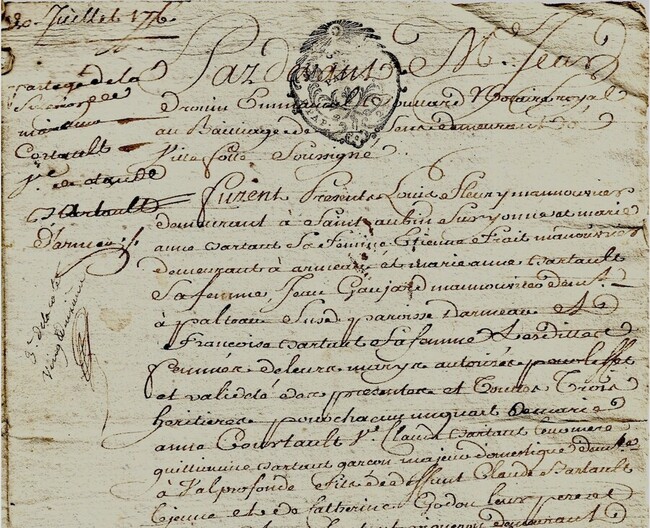 20 Juillet 176
partage de la
Succession de
marianne
Cortault
Ve. de claude
Vartault
Darmeau
3e. de la cote
vingt deuxieme
Pardevant Me. Jean
Drouin Commis Notaire royal
au Bailliage de Sens demeurant a
Ville folle Soussigné
Furent Presents Louis Fleury manouvrier
demeurant à Saint aubin Sur yonne et marie
anne vartault Sa femme Etienne Frait manouvrier
demeurant à armeau et marie anne vartault
Sa femme, Jean Gaujard manouvrier demt.
à palteau Susd. paroisse darmeau et
Francoise vartault Sa femme Lesdittes
femmes de leurs marys autorisés pour leffet
et validité des presentes et Toutes Trois
heritieres pour chacun un quart de marie
anne Courtault Ve. Claude vartault
guillaume vartault garçon majeur domestique demt.
à Valprofonde fils de deffunt Claude Vartault
et de Catherine Godou leur pere et